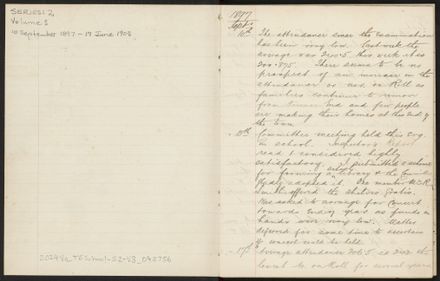 SERIES: 2
Volume 3
10 September 1897 - 19 June 1908
202980_TESchool-S2-V3_042756
1897
Sept.
10th The attendance since the examination
has been very low. Last week the
average was 200.5 this week it is
200.875. There seems to be no
prospect of an increase in the
attendance or no on Roll as
families continue to remove
from end and few people
are making their homes at this end of
the town
15th Committee meeting held this evg.
in school. Inspector's Report
read & considered highly
satisfactory. I submitted a scheme
for forming a school library & the
adopted it. One member
offered the gratis.
Was asked to arrange for Concert
towards end of year as funds in
hands were very low. Matter
deferred for some time to ascertain
if concert will be held.
17th Average attendance is
on Roll for several years